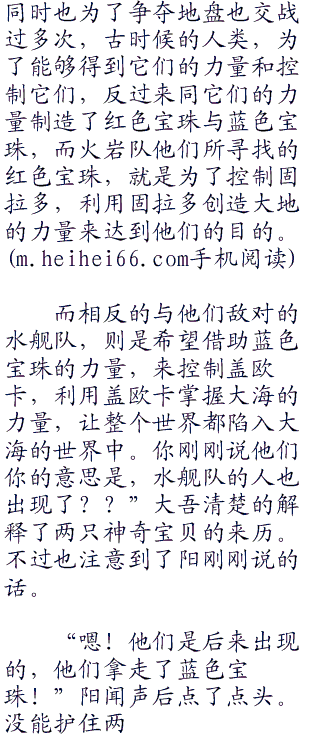 同时也为了争夺地盘也交战
过多次，古时候的人类，为
了能够得到它们的力量和控
制它们，反过来同它们的力
量制造了红色宝珠与蓝色宝
珠，而火岩队他们所寻找的
红色宝珠，就是为了控制固
拉多，利用固拉多创造大地
的力量来达到他们的目的。
(m.heihei66.com手机阅读)
而相反的与他们敌对的
水舰队，则是希望借助蓝色
宝珠的力量，来控制盖欧
卡，利用盖欧卡掌握大海的
力量，让整个世界都陷入大
海的世界中。你刚刚说他们
你的意思是，水舰队的人也
出现了？？”大吾清楚的解
释了两只神奇宝贝的来历。
不过也注意到了阳刚刚说的
话。
“嗯！他们是后来出现
的，他们拿走了蓝色宝
珠！”阳闻声后点了点头。
没能护住两